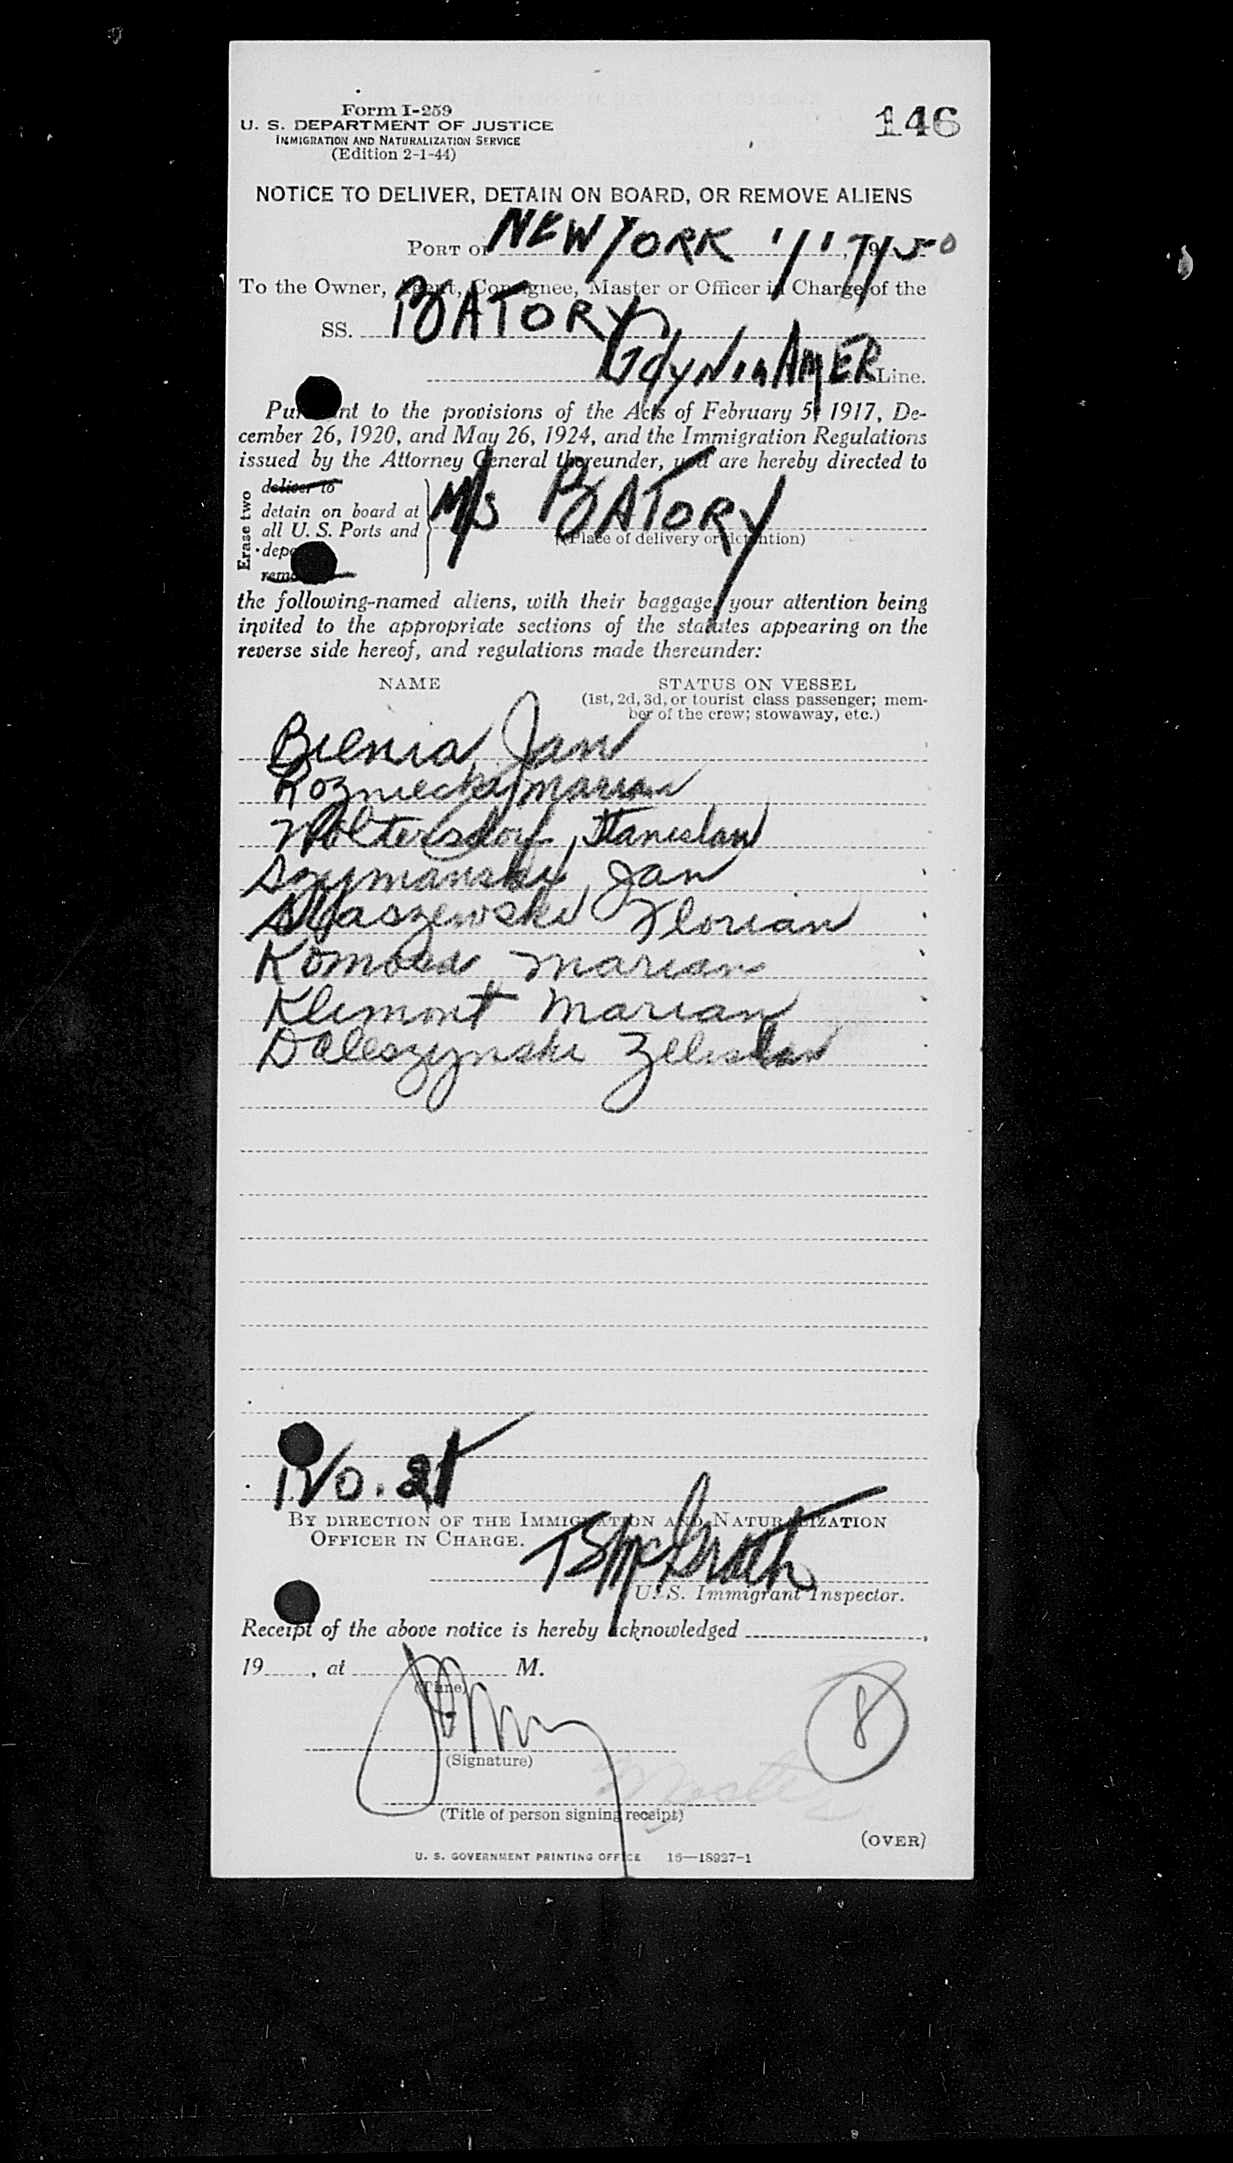 Form I-259
U. S. DEPARTMENT OF JUSTICE
IMMIGRATION AND NATURALIZATION SERVICE
(Edition 2-1-44)
146
NOTICE TO DELIVER, DETAIN ON BOARD, OR REMOVE ALIENS
PORT OF NEW YORK 1/17/50
To the Owner, Agent, Consignee, Master or Officer in Charge of the
SS. BATORY
Gdynia AMER Line.
Pursuant to the provisions of the Acts of February 5, 1917, De-
cember 26, 1920, and May 26, 1924, and the Immigration Regulations
issued by the Attorney General thereunder, you are hereby directed to
Erase two
deliver to
detain on board at
all U. S. Ports and
M/S BATORY
(Place of delivery or detention)
the following-named aliens, with their baggage, your attention being
invited to the appropriate sections of the statutes appearing on the
reverse side hereof, and regulations made thereunder:
NAME
STATUS ON VESSEL
(1st, 2d, 3d, or tourist class passenger; mem-
ber of the crew; stowaway, etc.)
Bienia, Jan
Rozniecki, Marian
Woltersdorf, Stanislaw
Szymanski, Jan
Florian
Marian
Klimont Marian
No. 21
BY DIRECTION OF THE IMMIGRATION AND NATURALIZATION
OFFICER IN CHARGE.
TS McGrath
U. S. Immigrant Inspector.
Receipt of the above notice is hereby acknowledged
19 , at M.
(Time)
8
(Signature)
Master
(Title of person signing receipt)
(OVER)
U. S. GOVERNMENT PRINTING OFFICE 16—18927-1